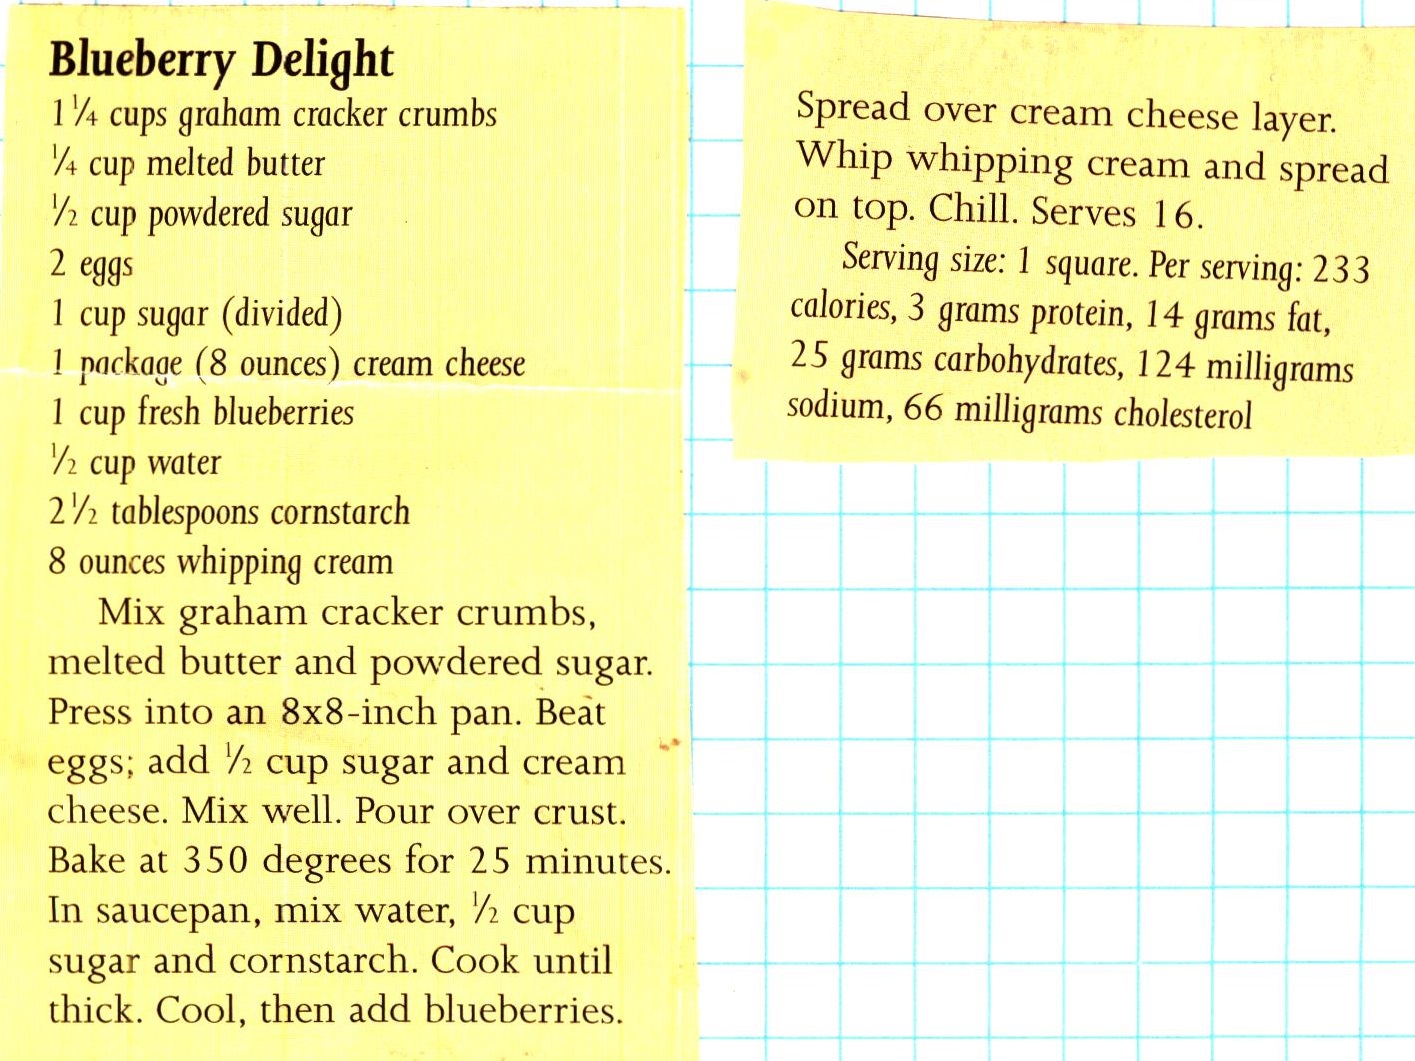 Blueberry Delight
1 ¼ cups graham cracker crumbs
¼ cup melted butter
½ cup powdered sugar
2 eggs
1 cup sugar (divided)
1 package (8 ounces) cream cheese
1 cup fresh blueberries
½ cup water
2 ½ tablespoons cornstarch
8 ounces whipping cream
Mix graham cracker crumbs,
melted butter and powdered sugar.
Press into an 8x8-inch pan. Beat
eggs; add ½ cup sugar and cream
cheese. Mix well. Pour over crust.
Bake at 350 degrees for 25 minutes.
In saucepan, mix water, ½ cup
sugar and cornstarch. Cook until
thick. Cool, then add blueberries.
Spread over cream cheese layer.
Whip whipping cream and spread
on top. Chill. Serves 16.
Serving size: 1 square. Per serving: 233
calories, 3 grams protein, 14 grams fat,
25 grams carbohydrates, 124 milligrams
sodium, 66 milligrams cholesterol